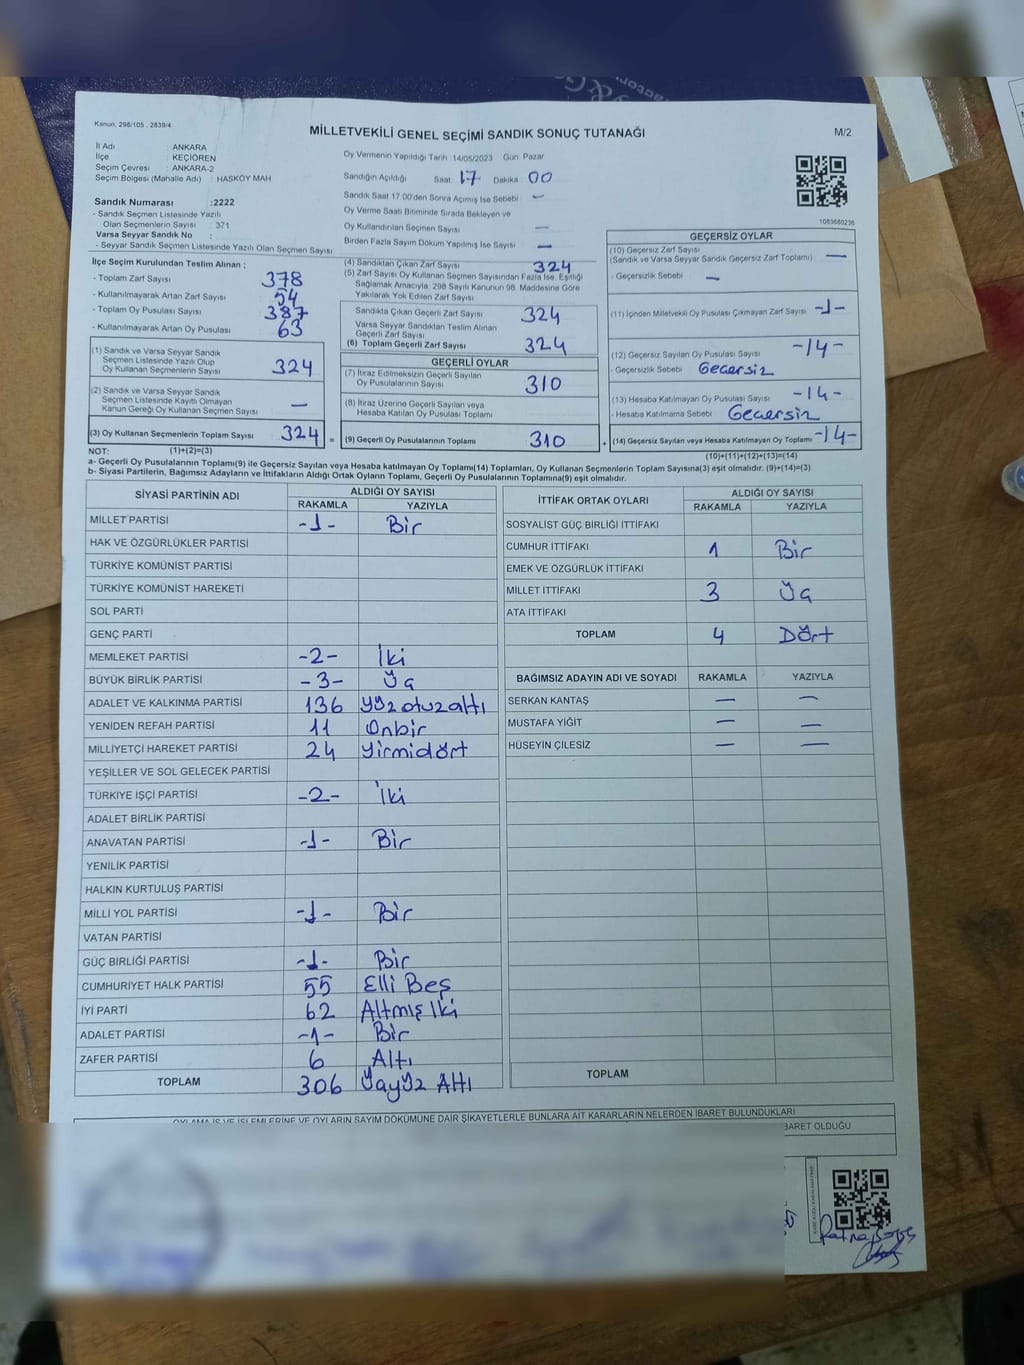 Kanun: 298/105 , 2839/4
MİLLETVEKİLİ GENEL SEÇİMİ SANDIK SONUÇ TUTANAĞI
M/2
İl Adı : ANKARA
İlçe : KEÇİÖREN
Seçim Çevresi : ANKARA-2
Seçim Bölgesi (Mahalle Adı) : HASKÖY MAH
Sandık Numarası :2222
- Sandık Seçmen Listesinde Yazılı
Olan Seçmenlerin Sayısı : 371
Varsa Seyyar Sandık No :
- Seyyar Sandık Seçmen Listesinde Yazılı Olan Seçmen Sayısı :
Oy Vermenin Yapıldığı Tarih 14/05/2023 Gün Pazar
Sandığın Açıldığı Saat 17 Dakika 00
Sandık Saat 17:00'den Sonra Açılmış İse Sebebi —
Oy Verme Saati Bitiminde Sırada Bekleyen ve
Oy Kullandırılan Seçmen Sayısı —
Birden Fazla Sayım Döküm Yapılmış İse Sayısı —
1083660236
İlçe Seçim Kurulundan Teslim Alınan :
- Toplam Zarf Sayısı 378
- Kullanılmayarak Artan Zarf Sayısı 54
- Toplam Oy Pusulası Sayısı 387
- Kullanılmayarak Artan Oy Pusulası 63
(1) Sandık ve Varsa Seyyar Sandık
Seçmen Listesinde Yazılı Olup
Oy Kullanan Seçmenlerin Sayısı 324
(2) Sandık ve Varsa Seyyar Sandık
Seçmen Listesinde Kayıtlı Olmayan
Kanun Gereği Oy Kullanan Seçmen Sayısı —
(3) Oy Kullanan Seçmenlerin Toplam Sayısı 324 =
(4) Sandıktan Çıkan Zarf Sayısı 324
(5) Zarf Sayısı Oy Kullanan Seçmen Sayısından Fazla İse, Eşitliği
Sağlamak Amacıyla, 298 Sayılı Kanunun 98. Maddesine Göre
Yakılarak Yok Edilen Zarf Sayısı
Sandıkta Çıkan Geçerli Zarf Sayısı 324
Varsa Seyyar Sandıktan Teslim Alınan
Geçerli Zarf Sayısı
(6) Toplam Geçerli Zarf Sayısı 324
GEÇERLİ OYLAR
(7) İtiraz Edilmeksizin Geçerli Sayılan
Oy Pusulalarının Sayısı 310
(8) İtiraz Üzerine Geçerli Sayılan veya
Hesaba Katılan Oy Pusulası Toplamı
(9) Geçerli Oy Pusulalarının Toplamı 310 +
GEÇERSİZ OYLAR
(10) Geçersiz Zarf Sayısı
(Sandık ve Varsa Seyyar Sandık Geçersiz Zarf Toplamı) —
- Geçersizlik Sebebi —
(11) İçinden Milletvekili Oy Pusulası Çıkmayan Zarf Sayısı -1-
(12) Geçersiz Sayılan Oy Pusulası Sayısı -14-
- Geçersizlik Sebebi Geçersiz
(13) Hesaba Katılmayan Oy Pusulası Sayısı -14-
- Hesaba Katılmama Sebebi Geçersiz
(14) Geçersiz Sayılan veya Hesaba Katılmayan Oy Toplamı -14-
NOT: (1)+(2)=(3)
(10)+(11)+(12)+(13)=(14)
a- Geçerli Oy Pusulalarının Toplamı(9) ile Geçersiz Sayılan veya Hesaba katılmayan Oy Toplamı(14) Toplamları, Oy Kullanan Seçmenlerin Toplam Sayısına(3) eşit olmalıdır. (9)+(14)=(3)
b- Siyasi Partilerin, Bağımsız Adayların ve İttifakların Aldığı Ortak Oyların Toplamı, Geçerli Oy Pusulalarının Toplamına(9) eşit olmalıdır.
SİYASİ PARTİNİN ADI ALDIĞI OY SAYISI
RAKAMLA YAZIYLA
MİLLET PARTİSİ -1- Bir
HAK VE ÖZGÜRLÜKLER PARTİSİ
TÜRKİYE KOMÜNİST PARTİSİ
TÜRKİYE KOMÜNİST HAREKETİ
SOL PARTİ
GENÇ PARTİ
MEMLEKET PARTİSİ -2- İki
BÜYÜK BİRLİK PARTİSİ -3- Üç
ADALET VE KALKINMA PARTİSİ 136 Yüzotuzaltı
YENİDEN REFAH PARTİSİ 11 Onbir
MİLLİYETÇİ HAREKET PARTİSİ 24 Yirmidört
YEŞİLLER VE SOL GELECEK PARTİSİ
TÜRKİYE İŞÇİ PARTİSİ -2- İki
ADALET BİRLİK PARTİSİ
ANAVATAN PARTİSİ -1- Bir
YENİLİK PARTİSİ
HALKIN KURTULUŞ PARTİSİ
MİLLİ YOL PARTİSİ -1- Bir
VATAN PARTİSİ
GÜÇ BİRLİĞİ PARTİSİ -1- Bir
CUMHURİYET HALK PARTİSİ 55 Elli Beş
İYİ PARTİ 62 Altmış İki
ADALET PARTİSİ -1- Bir
ZAFER PARTİSİ 6 Altı
TOPLAM 306 Üçyüz Altı
İTTİFAK ORTAK OYLARI ALDIĞI OY SAYISI
RAKAMLA YAZIYLA
SOSYALİST GÜÇ BİRLİĞİ İTTİFAKI
CUMHUR İTTİFAKI 1 Bir
EMEK VE ÖZGÜRLÜK İTTİFAKI
MİLLET İTTİFAKI 3 Üç
ATA İTTİFAKI
TOPLAM 4 Dört
BAĞIMSIZ ADAYIN ADI VE SOYADI RAKAMLA YAZIYLA
SERKAN KANTAŞ — —
MUSTAFA YİĞİT — —
HÜSEYİN ÇİLESİZ — —
TOPLAM
OYLAMA İŞ VE İŞLEMLERİNE VE OYLARIN SAYIM DÖKÜMÜNE DAİR ŞİKAYETLERLE BUNLARA AİT KARARLARIN NELERDEN İBARET BULUNDUKLARI
BARET OLDUĞU